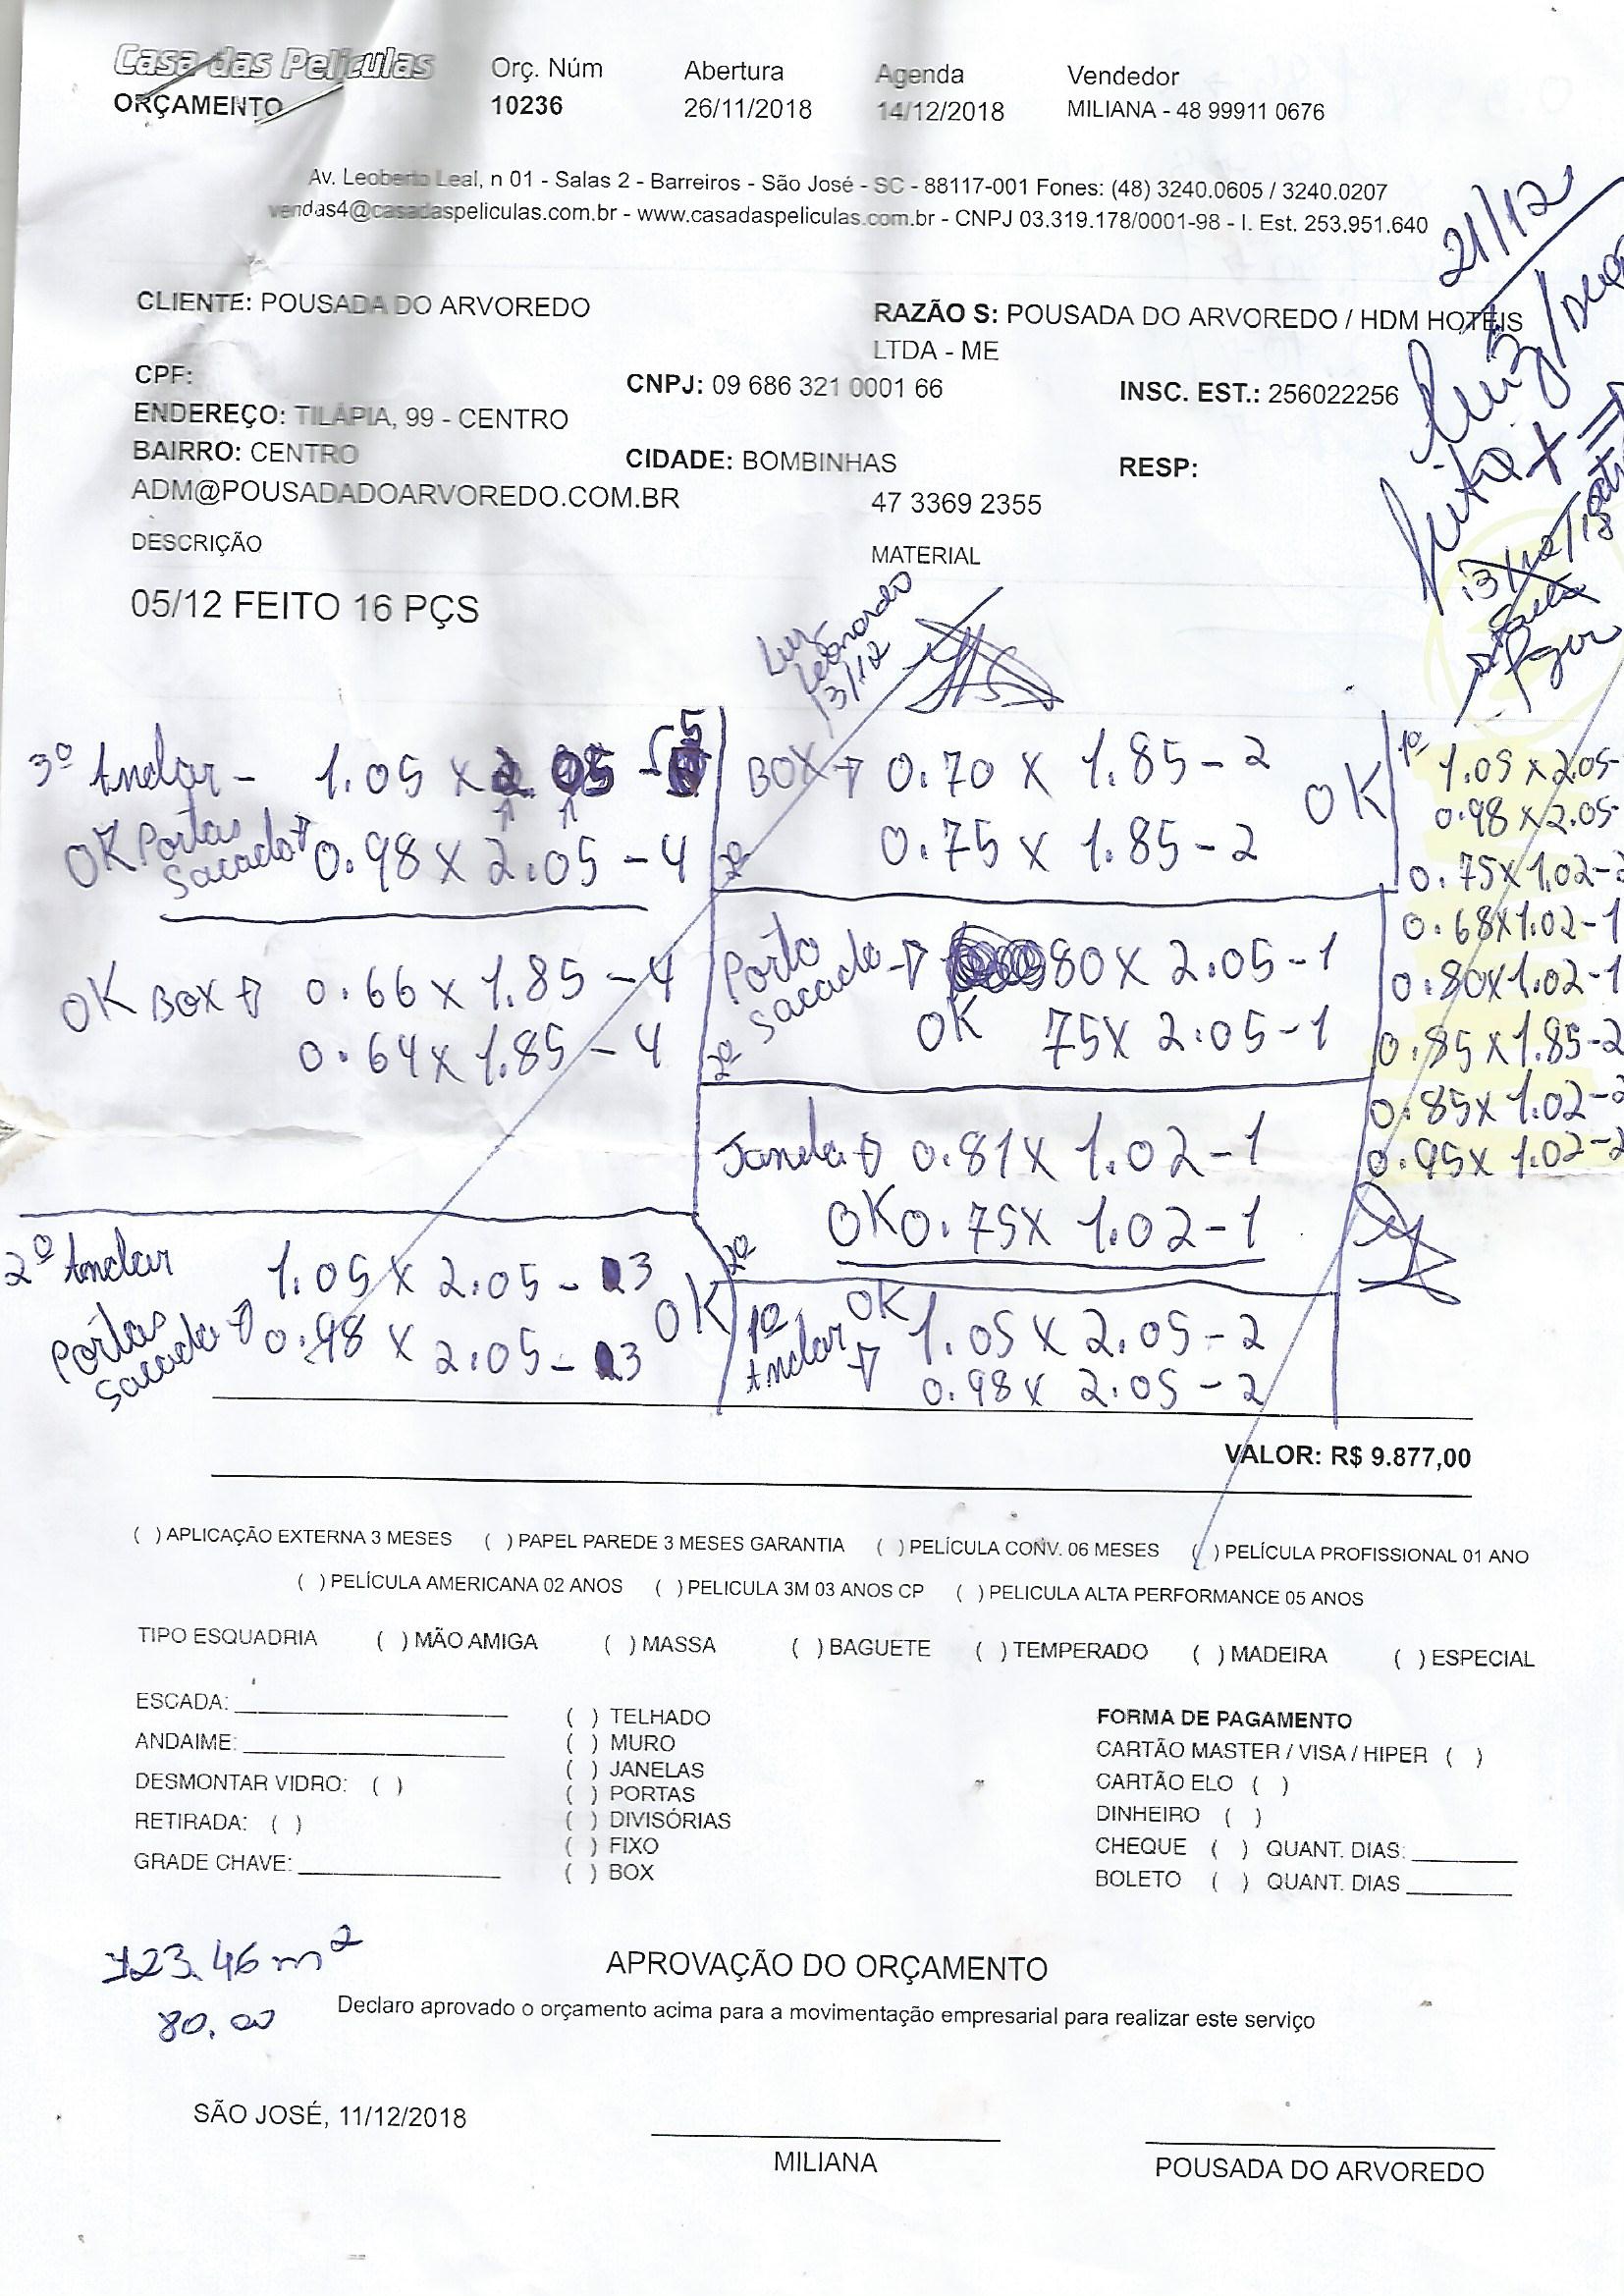 Casa das Películas
ORÇAMENTO
Orç. Núm
10236
Abertura
26/11/2018
Agenda
14/12/2018
Vendedor
MILIANA - 48 99911 0676
Av. Leoberto Leal, n 01 - Salas 2 - Barreiros - São José - SC - 88117-001 Fones: (48) 3240.0605 / 3240.0207
vendas4@casadaspeliculas.com.br - www.casadaspeliculas.com.br - CNPJ 03.319.178/0001-98 - I. Est. 253.951.640
21/12
Luiz
13/12
CLIENTE: POUSADA DO ARVOREDO
RAZÃO S: POUSADA DO ARVOREDO / HDM HOTÉIS
LTDA - ME
CPF:
CNPJ: 09 686 321 0001 66
INSC. EST.: 256022256
ENDEREÇO: TILÁPIA, 99 - CENTRO
BAIRRO: CENTRO
CIDADE: BOMBINHAS
RESP:
ADM@POUSADADOARVOREDO.COM.BR
47 3369 2355
DESCRIÇÃO
MATERIAL
05/12 FEITO 16 PÇS
Luiz
Leonardo
13/12
3º Andar - 1.05 x 2.05 - 5
OK Portas Sacada 0.98 x 2.05 - 4
OK BOX 0.66 x 1.85 - 4
0.64 x 1.85 - 4
2º Andar 1.05 x 2.05 - 3
Portas Sacada 0.98 x 2.05 - 3 OK
BOX 0.70 x 1.85 - 2
2º 0.75 x 1.85 - 2 OK
Porta Sacada 80 x 2.05 - 1
2º OK 75 x 2.05 - 1
Janela 0.81 x 1.02 - 1
2º OK 0.75 x 1.02 - 1
1º Andar OK 1.05 x 2.05 - 2
0.98 x 2.05 - 2
1º 1.05 x 2.05 -
0.98 x 2.05
0.75 x 1.02 - 2
0.68 x 1.02 - 1
0.80 x 1.02 - 1
0.85 x 1.85 - 2
0.85 x 1.02 - 2
0.95 x 1.02 - 2
VALOR: R$ 9.877,00
( ) APLICAÇÃO EXTERNA 3 MESES ( ) PAPEL PAREDE 3 MESES GARANTIA ( ) PELÍCULA CONV. 06 MESES ( ) PELÍCULA PROFISSIONAL 01 ANO
( ) PELÍCULA AMERICANA 02 ANOS ( ) PELICULA 3M 03 ANOS CP ( ) PELICULA ALTA PERFORMANCE 05 ANOS
TIPO ESQUADRIA ( ) MÃO AMIGA ( ) MASSA ( ) BAGUETE ( ) TEMPERADO ( ) MADEIRA ( ) ESPECIAL
ESCADA:
ANDAIME:
DESMONTAR VIDRO: ( )
RETIRADA: ( )
GRADE CHAVE:
( ) TELHADO
( ) MURO
( ) JANELAS
( ) PORTAS
( ) DIVISÓRIAS
( ) FIXO
( ) BOX
FORMA DE PAGAMENTO
CARTÃO MASTER / VISA / HIPER ( )
CARTÃO ELO ( )
DINHEIRO ( )
CHEQUE ( ) QUANT. DIAS:
BOLETO ( ) QUANT. DIAS
123.46 m²
80,00
APROVAÇÃO DO ORÇAMENTO
Declaro aprovado o orçamento acima para a movimentação empresarial para realizar este serviço
SÃO JOSÉ, 11/12/2018
MILIANA
POUSADA DO ARVOREDO